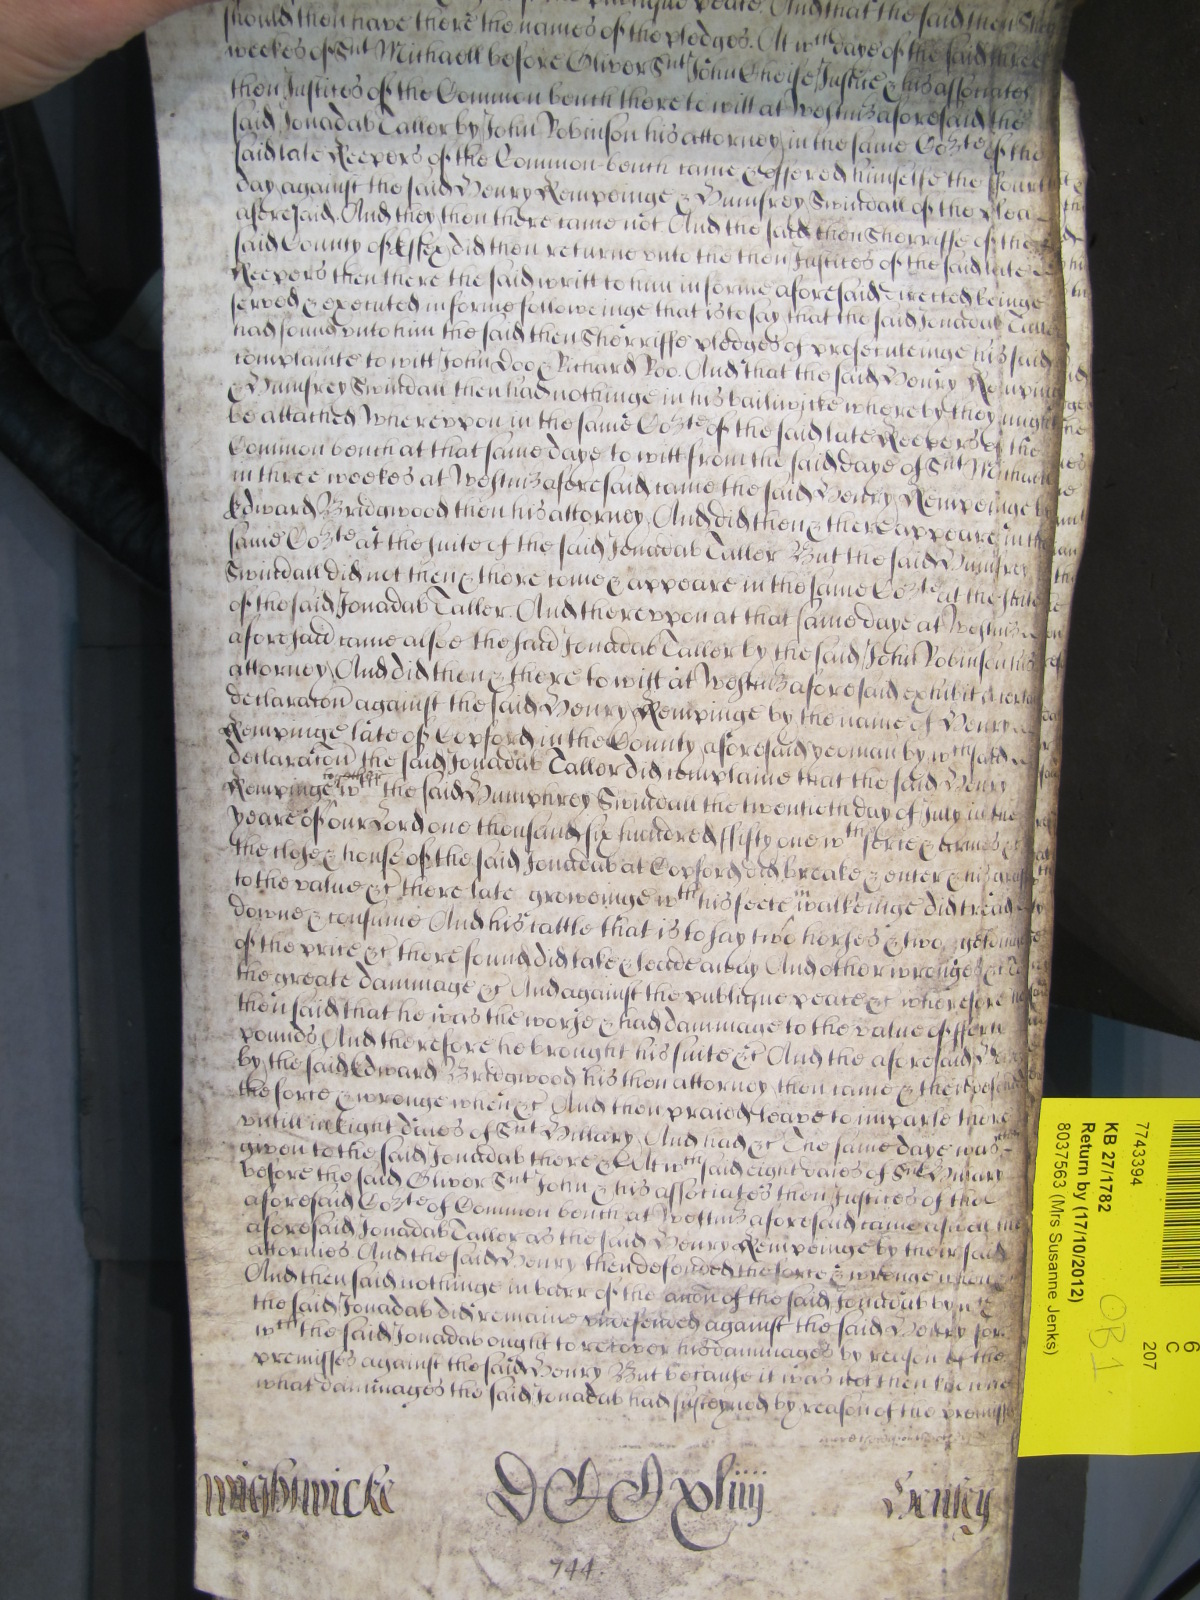 publique peace. And that the said then Sher
should then have there the names of the pledges. At wch daye of the said three
weekes of Snt Michaell before Oliver Snt John Cheife Justice & his associates
then Justices of the Common bench there to witt at Westmr aforesaid the
said Jonadab Taller by John Robinson his attorney in the same Corte of the
said late Keepers of the Common bench came & offered himselfe the fourth
day against the said Henry Kempinge & Humfrey Swindall of the plea
aforesaid. And they then there came not And the said then Sherriffe of the
said County of Essex did then returne unto the then Justices of the said late
Keepers then there the said writt to him in forme aforesaid directed beinge
served & executed in forme followeinge that is to say that the said Jonadab Taller
had found unto him the said then Sherriffe pledges of prosecuteinge his said
complainte to witt John Doo & Richard Roo. And that the said Henry Kemping
& Humfrey Swindall then had nothinge in his bailiwicke whereby they might
be attached Whereupon in the same Corte of the said late Keepers of the
Common bench at that same daye to witt from the said daye of Snt Michaell
in three weekes at Westmr aforesaid came the said Henry Kempeinge by
Edward Bridgwood then his attorney. And did then & there appeare in the
same Corte at the suite of the said Jonadab Taller But the said Humfrey
Swindall did not then & there come & appeare in the same Corte at the suite
of the said Jonadab Taller. And thereupon at that same daye at Westmr
aforesaid came alsoe the said Jonadab Taller by the said John Robinson his
attorney And did then & there to witt at Westmr aforesaid exhibit a certaine
declaracon against the said Henry Kempinge by the name of Henry
Kempinge late of Copford in the County aforesaid yeoman by wch said
declaracon the said Jonadab Taller did complaine that the said Henry
Kempinge together wth the said Humphrey Swindall the twentieth day of July in the
yeare of our Lord one thousand six hundred fifty one wth force & armes &c
the close & house of the said Jonadab at Copford did breake & enter & his grasse
to the value &c there late groweinge wth his feete in walkeinge did tread
downe & consume And his cattle that is to say two horses & two geldings
of the price &c there found did take & leade away And other wronges &c to
the greate dammage &c And against the publique peace &c wherefore he
then said that he was the worse & had dammage to the value of fforty
pounds And therefore he brought his suite &c And the aforesaid Henry
by the said Edward Bridgwood his then attorney then came & then defended
the force & wronge when &c And then praied leave to imparle there
untill in Eight daies of Snt Hillary And had &c The same daye was then
given to the said Jonadab there &c At wch said eight daies of Snt Hillary
before the said Oliver Snt John & his associates then Justices of the
aforesaid Corte of Common bench at Westmr aforesaid came aswell the
aforesaid Jonadab Taller as the said Henry Kempeinge by their said
attornies And the said Henry then defended the force & wronge when &c
And then said nothinge in barr of the accon of the said Jonadab by wch
the said Jonadab did remaine undefended against the said Henry for
wch the said Jonadab ought to recover his dammages by reason of the
premisses against the said Henry But because it was not then knowne
what dammages the said Jonadab had susteyned by reason of the premisses
Wightwicke DCCxliiij Henley
744
7743394
KB 27/1782
Return by (17/10/2012)
8037563 (Mrs Susanne Jenks)
6
C
207
OB 1